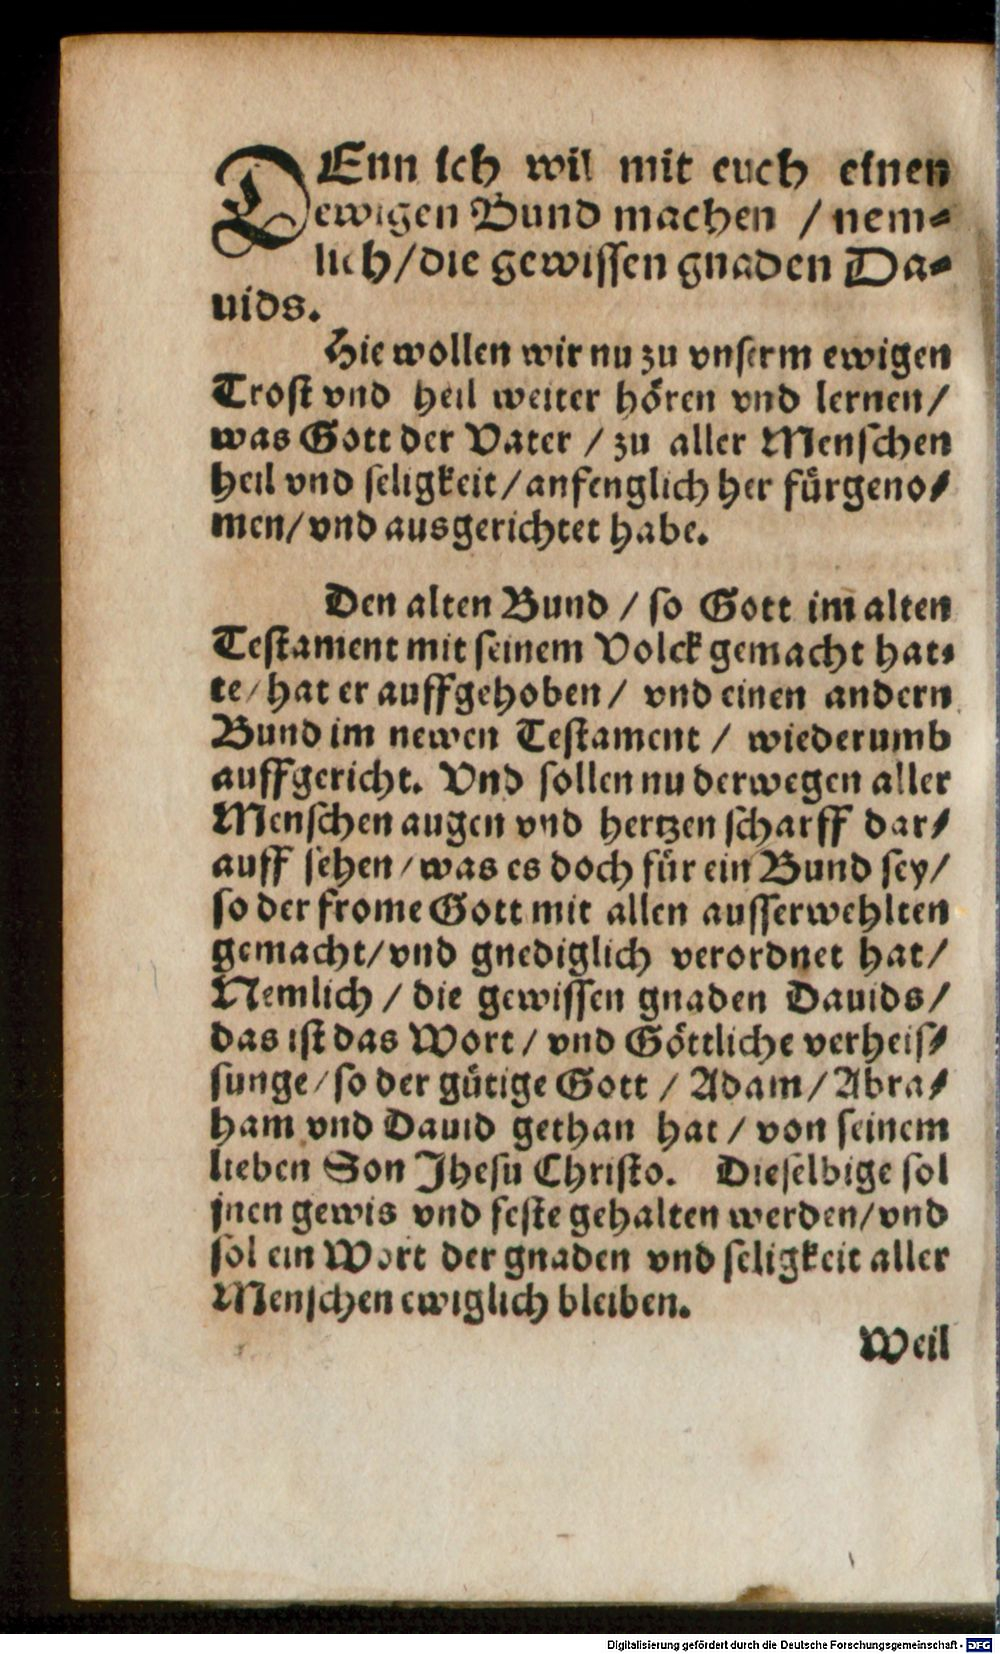 DEnn ich wil mit euch einen
ewigen Bund machen / nem⸗
lich/die gewissen gnaden Da⸗
uids.
Hie wollen wir nu zu vnserm ewigen
Trost vnd heil weiter hören vnd lernen/
was Gott der Vater / zu aller Menschen
heil vnd seligkeit/anfenglich her fürgeno⸗
men/vnd ausgerichtet habe.
Den alten Bund / so Gott im alten
Testament mit seinem Volck gemacht hat⸗
te/hat er auffgehoben/ vnd einen andern
Bund im newen Testament / wiederumb
auffgericht. Vnd sollen nu derwegen aller
Menschen augen vnd hertzen scharff dar⸗
auff sehen/was es doch für ein Bund sey/
so der frome Gott mit allen ausserwehlten
gemacht/vnd gnediglich verordnet hat/
Nemlich / die gewissen gnaden Dauids/
das ist das Wort/ vnd Göttliche verheis⸗
sunge/so der gütige Gott / Adam/Abra⸗
ham vnd Dauid gethan hat / von seinem
lieben Son Jhesu Christo. Dieselbige sol
jnen gewis vnd feste gehalten werden/vnd
sol ein Wort der gnaden vnd seligkeit aller
Menschen ewiglich bleiben.
Weil
Digitalisierung gefördert durch die Deutsche Forschungsgemeinschaft - DFG